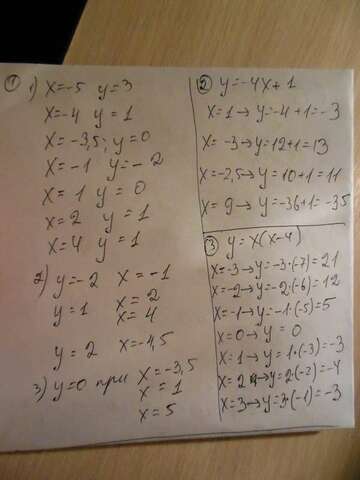 ① 1) x=-5 y=3
x=-4 y=1
x=-3,5; y=0
x=-1 y=-2
x=1 y=0
x=2 y=1
x=4 y=1
2) y=-2 x=-1
y=1 x=2
x=4
y=2 x=-4,5
3) y=0 при x=-3,5
x=1
x=5
② y=-4x+1
x=1→y=-4+1=-3
x=-3→y=12+1=13
x=-2,5→y=10+1=11
x=9→y=-36+1=-35
③ y=x(x-4)
x=-3→y=-3·(-7)=21
x=-2→y=-2·(-6)=12
x=-1→y=-1·(-5)=5
x=0→y=0
x=1→y=1·(-3)=-3
x=2→y=2·(-2)=-4
x=3→y=3·(-1)=-3